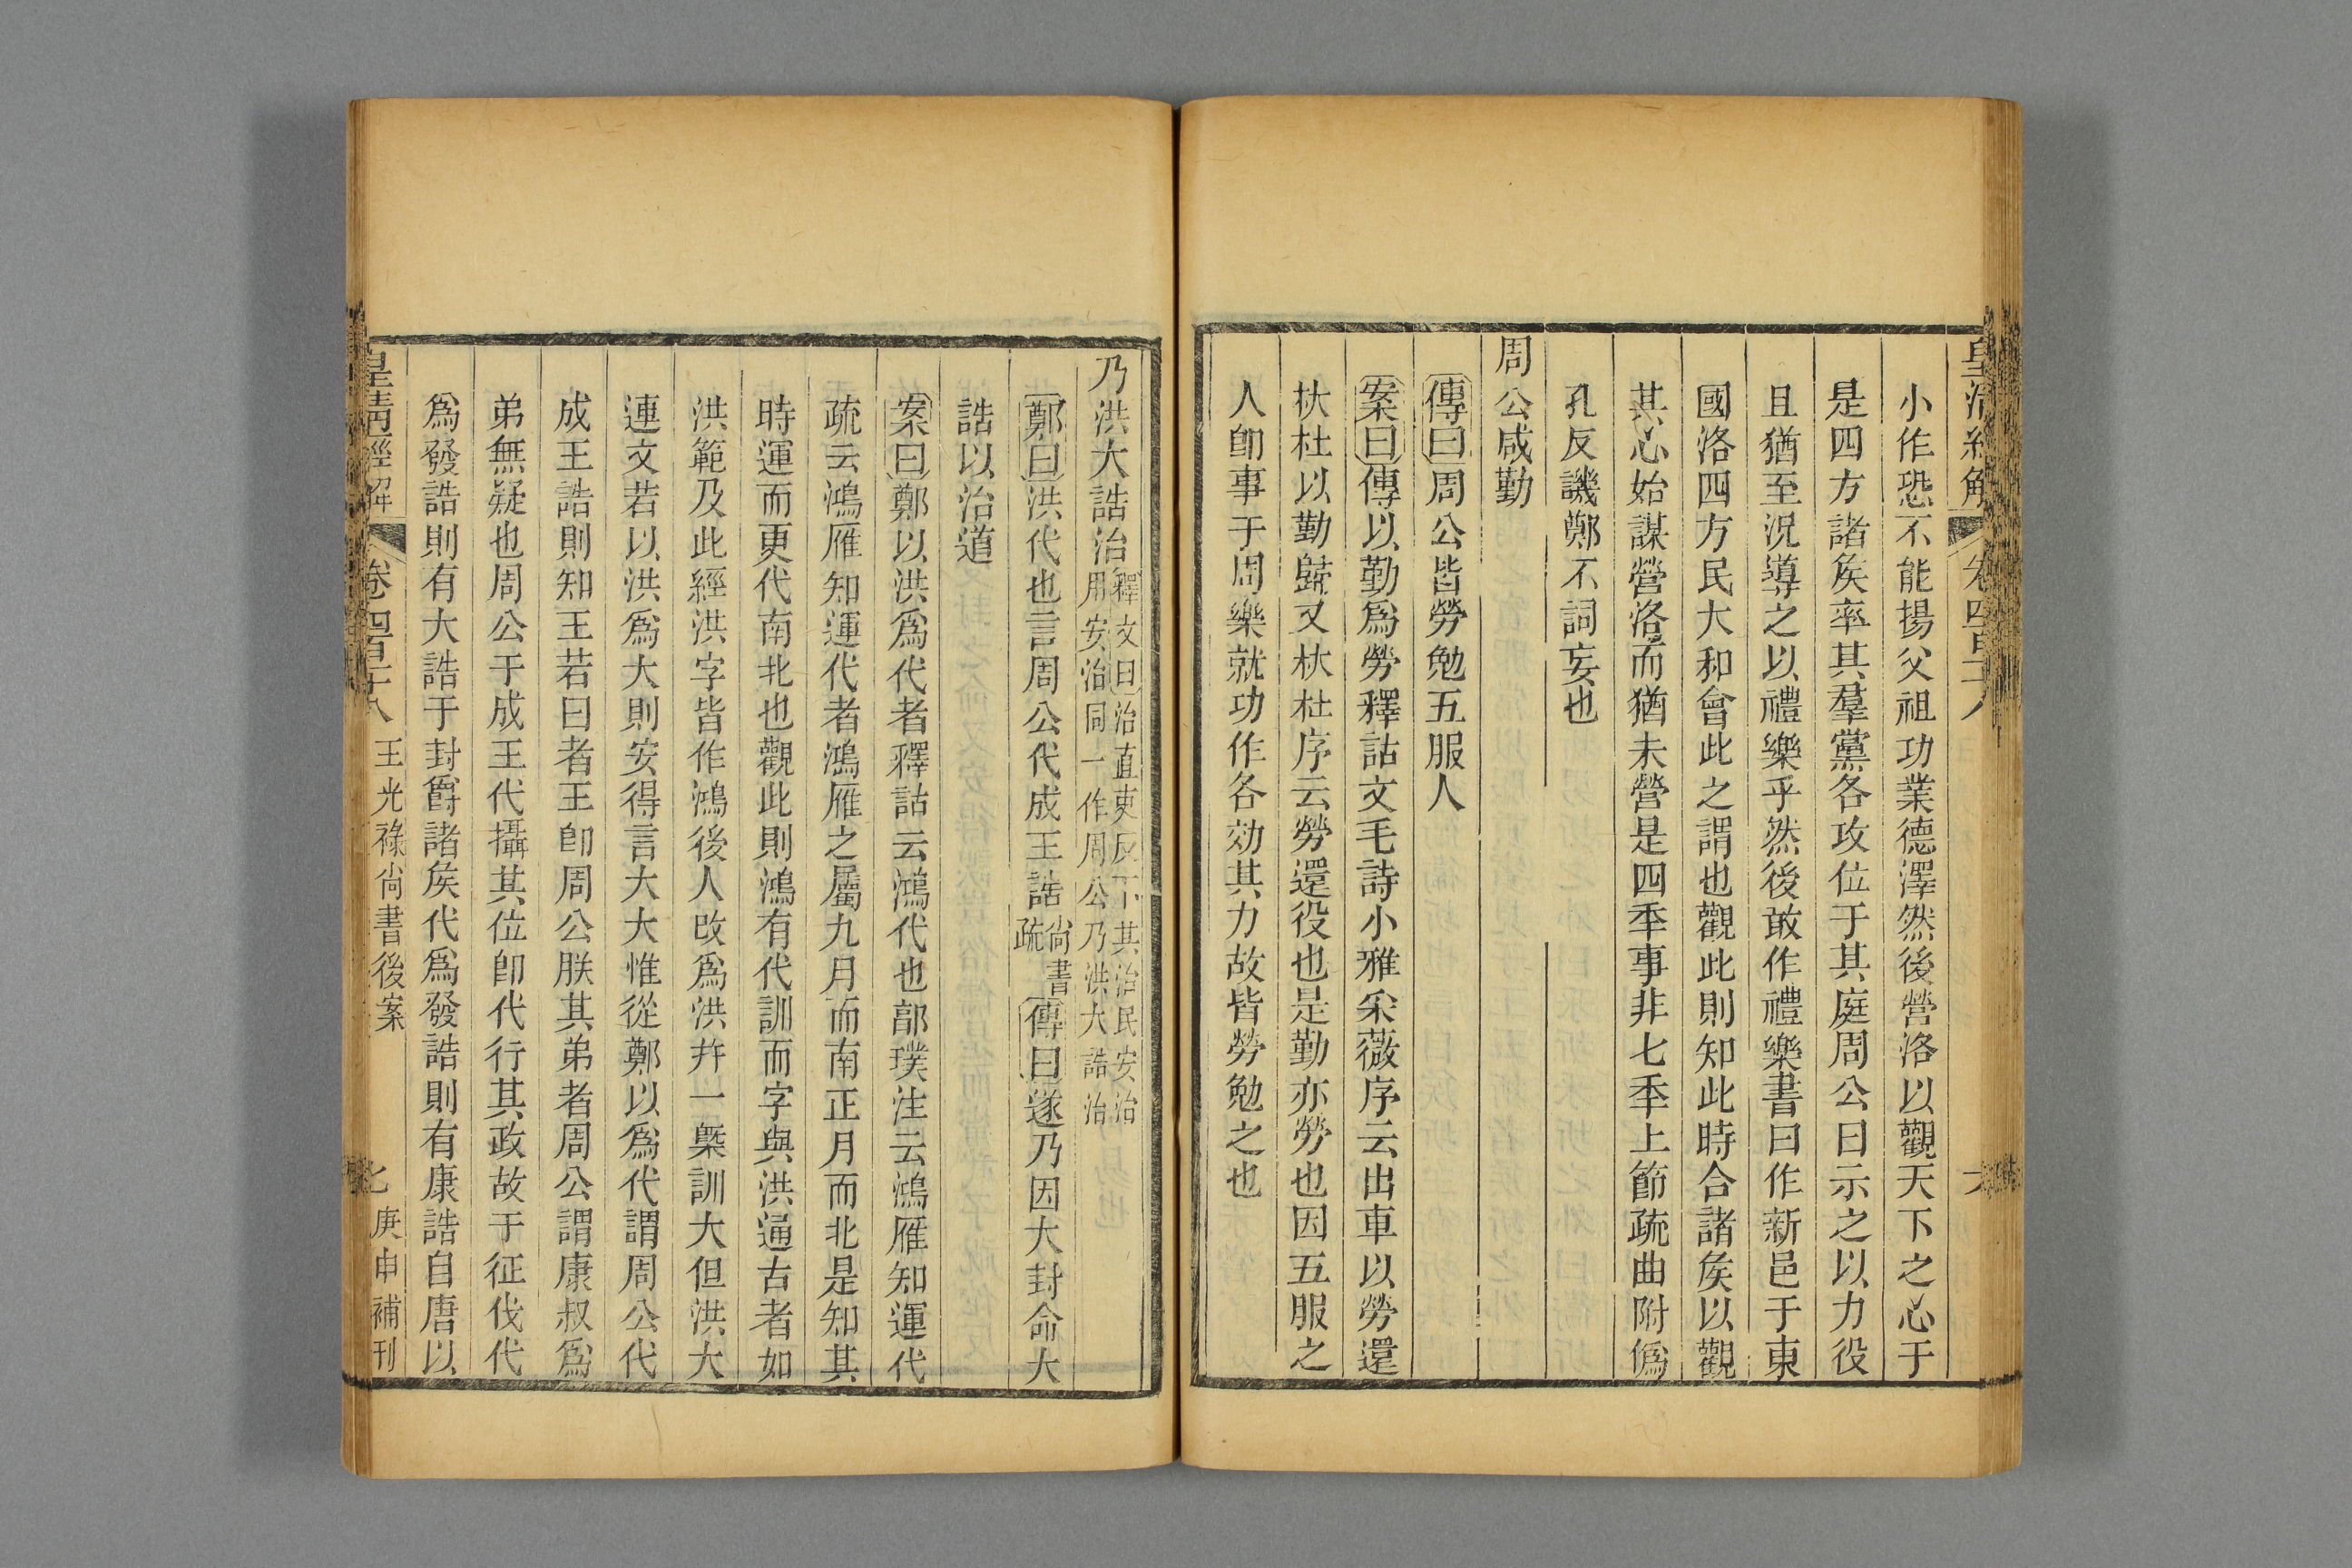 小作恐不能揚父祖功業德澤然後營洛以觀天下之心于
是四方諸矦率其羣黨各攻位于其庭周公曰示之以力役
且猶至況導之以禮樂乎然後敢作禮樂書曰作新邑于東
國洛四方民大和會此之謂也觀此則知此時合諸矦以觀
其心始謀營洛而猶未營是四秊事非七秊上節疏曲附僞
孔反譏鄭不詞妄也
周公咸勤
傳曰周公皆勞勉五服人
案曰傳以勤爲勞釋詁文毛詩小雅采薇序云出車以勞還
杕杜以勤歸又杕杜序云勞還役也是勤亦勞也因五服之
人卽事于周樂就功作各効其力故皆勞勉之也
乃洪大誥治釋文曰治直吏反下其治民安治
用安治同一作周公乃洪大誥治
鄭曰洪代也言周公代成王誥尚書疏傳曰遂乃因大封命大
誥以治道
案曰鄭以洪爲代者釋詁云鴻代也郭璞注云鴻雁知運代
疏云鴻雁知運代者鴻雁之屬九月而南正月而北是知其
時運而更代南北也觀此則鴻有代訓而字與洪通古者如
洪範及此經洪字皆作鴻後人改爲洪幷一槩訓大但洪大
連文若以洪爲大則安得言大大惟從鄭以爲代謂周公代
成王誥則知王若曰者王卽周公朕其弟者周公謂康叔爲
弟無疑也周公于成王代攝其位卽代行其政故于征伐代
爲發誥則有大誥于封爵諸矦代爲發誥則有康誥自唐以
皇清經解 卷四百十八 王光祿尚書後案 七 庚申補刊